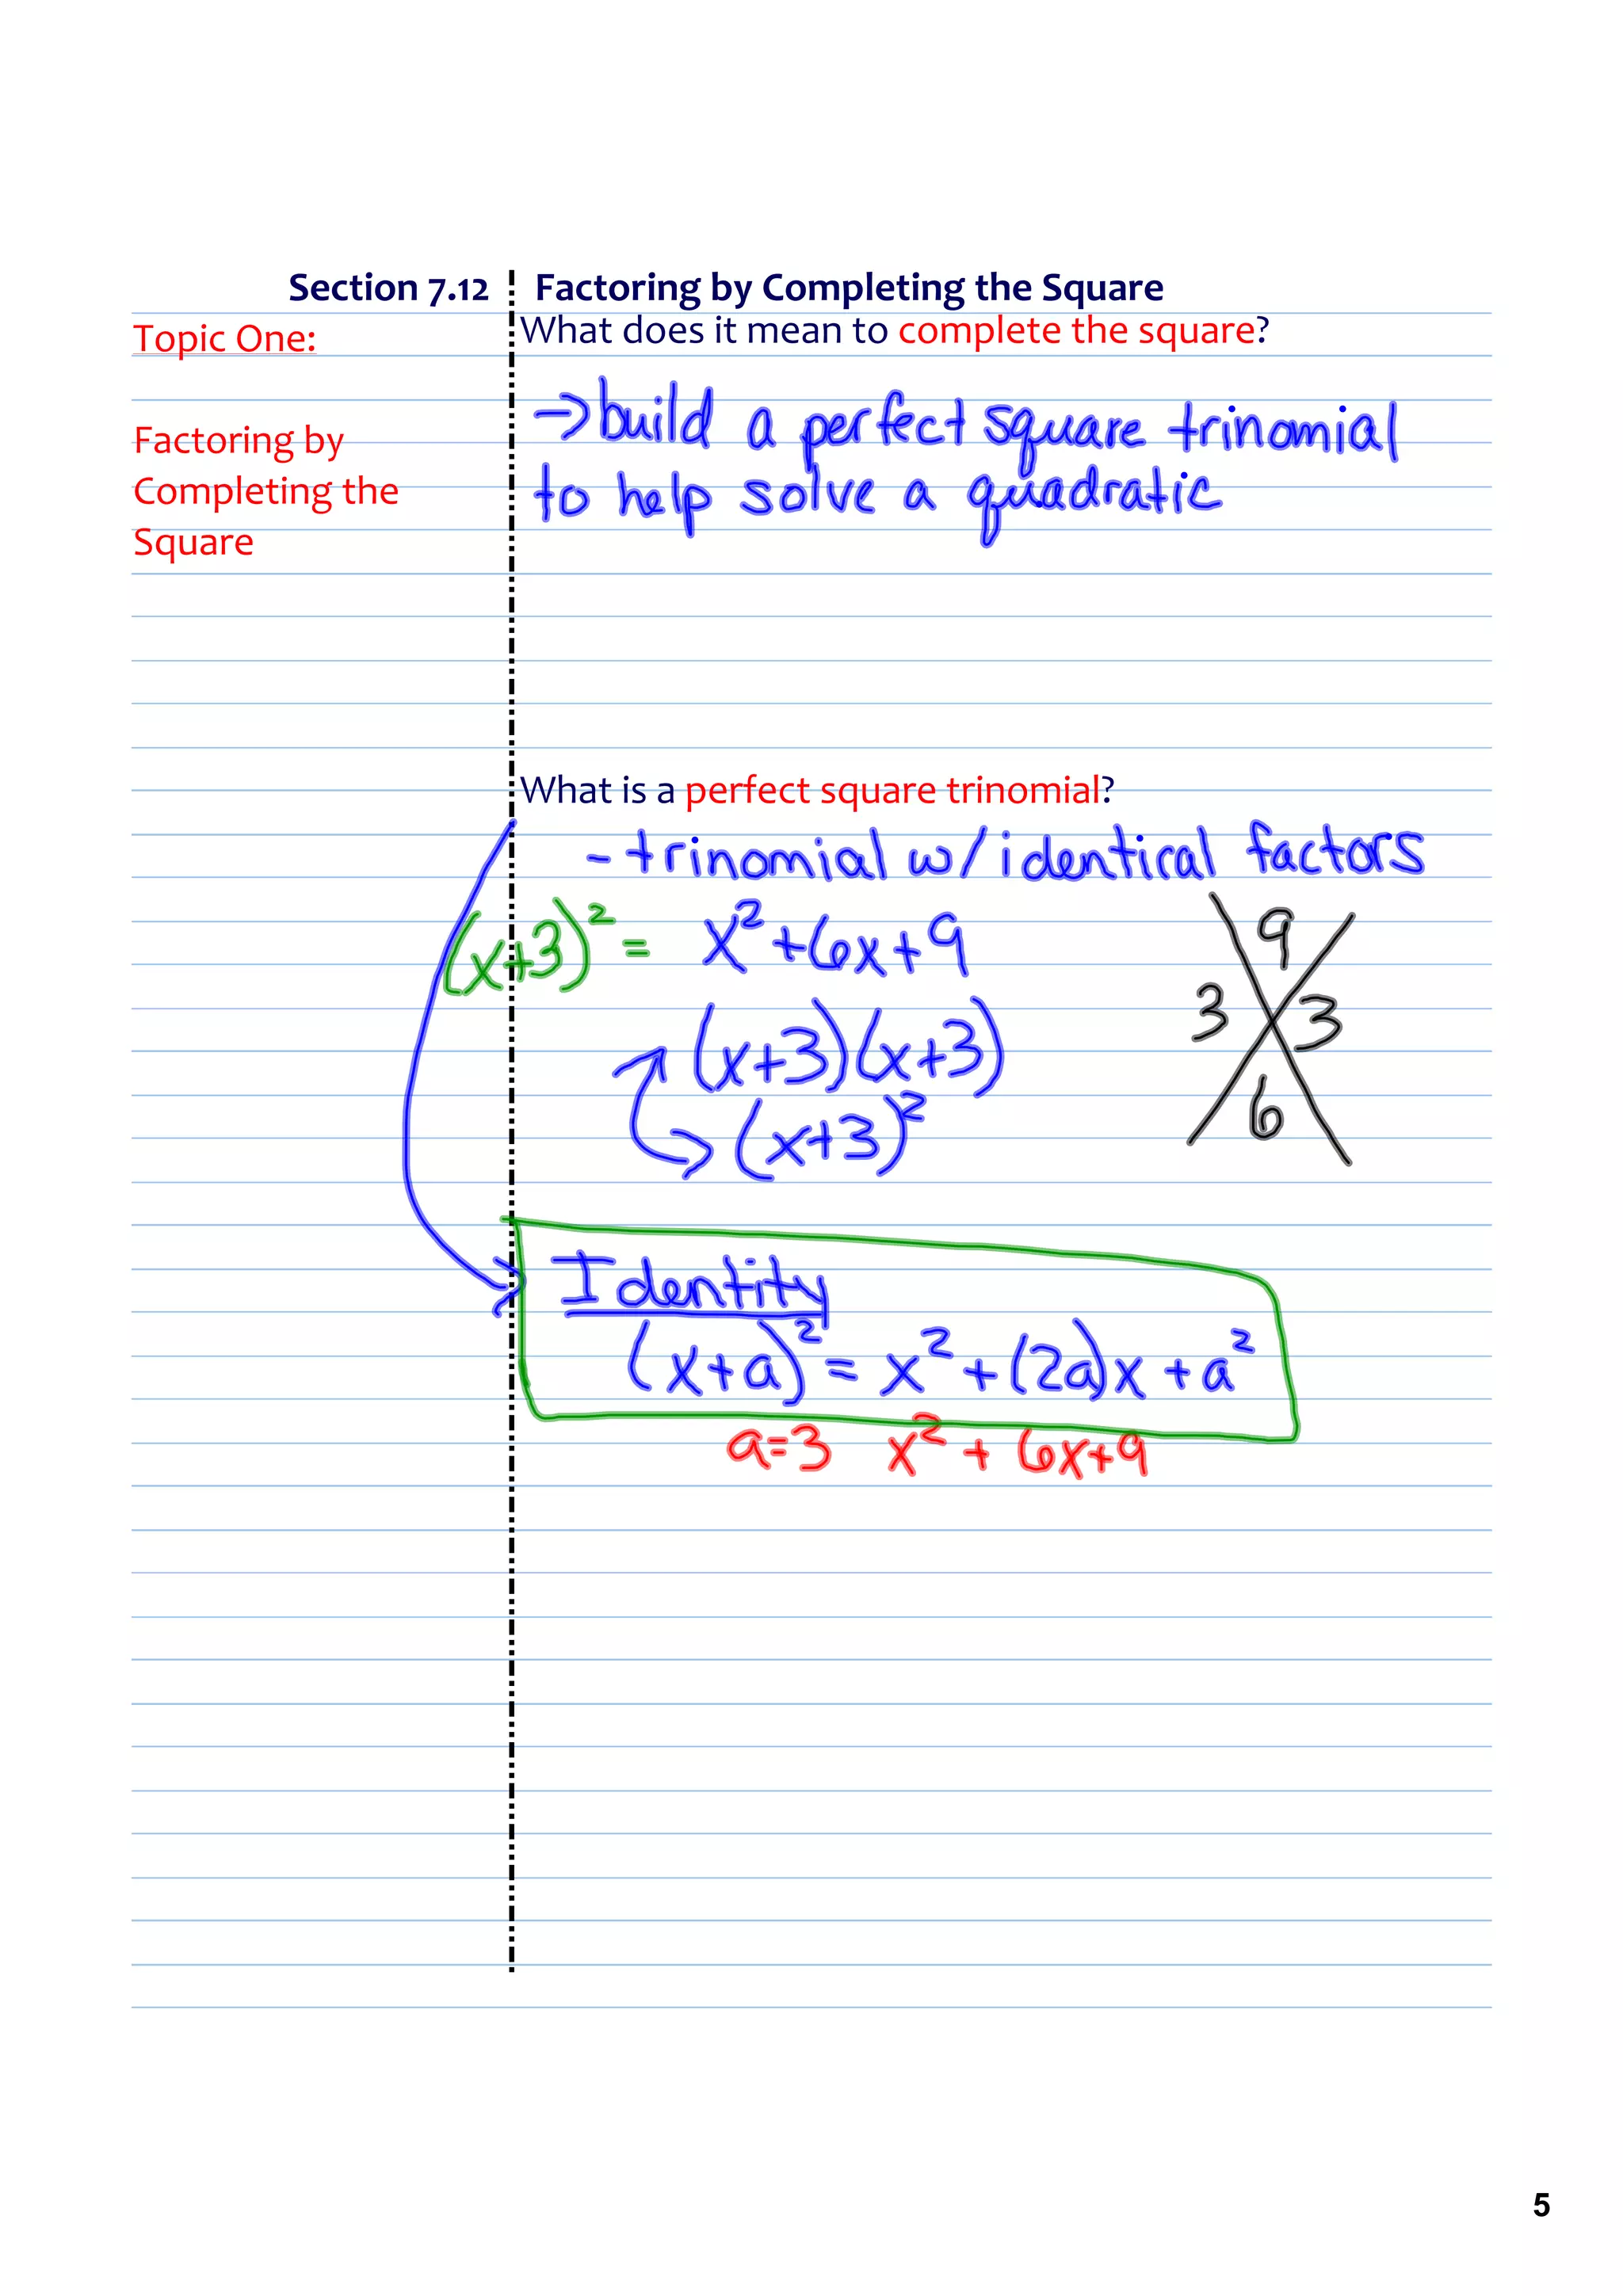 Section 7.12 Factoring by Completing the Square
Topic One:
Factoring by
Completing the
Square
What does it mean to complete the square?
→build a perfect square trinomial
to help solve a quadratic
What is a perfect square trinomial?
- trinomial w/ identical factors
(x+3)² = x²+6x+9
(x+3)(x+3)
(x+3)²
9
3 3
6
Identity
(x+a)² = x²+(2a)x+a²
a=3 x²+6x+9
5